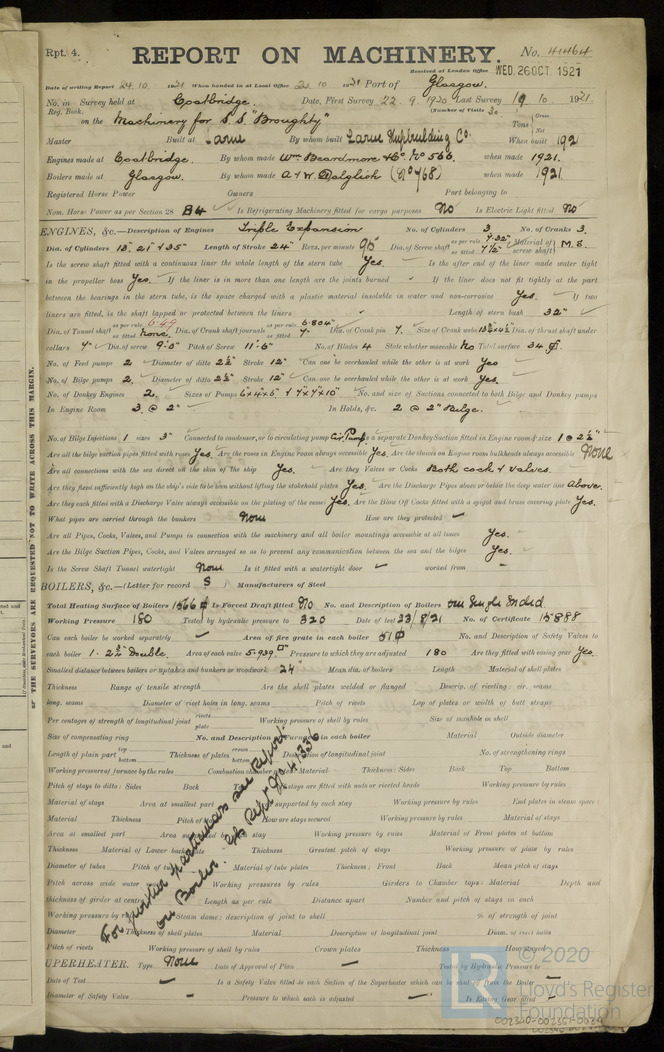 Rpt. 4.
REPORT ON MACHINERY.
No. 41464
Received at London Office WED. 26 OCT. 1921
Date of writing Report 24.10. 1921 When handed in at Local Office 1921 Port of Glasgow.
No. in Survey held at Coatbridge. Date, First Survey 22.9.1920 Last Survey 19 10 1921
Reg. Book. (Number of Visits
on the Machinery for S.S. "Broughty" Tons Gross Net
Master Built at Larne By whom built Larne Shipbuilding Co. When built 192
Engines made at Coatbridge. By whom made Wm Beardmore & Co. No 566. when made 1921.
Boilers made at Glasgow. By whom made A & W Dalglish (No 768) when made 1921
Registered Horse Power Owners Port belonging to
Nom. Horse Power as per Section 28 84 Is Refrigerating Machinery fitted for cargo purposes No Is Electric Light fitted No
ENGINES, &c.—Description of Engines Triple Expansion No. of Cylinders 3 No. of Cranks 3.
Dia. of Cylinders 13", 21" & 35" Length of Stroke 24" Revs. per minute 95 Dia. of Screw shaft as per rule as fitted 7½" Material of screw shaft M.S.
Is the screw shaft fitted with a continuous liner the whole length of the stern tube Yes. Is the after end of the liner made water tight
in the propeller boss Yes. If the liner is in more than one length are the joints burned - If the liner does not fit tightly at the part
between the bearings in the stern tube, is the space charged with a plastic material insoluble in water and non-corrosive Yes. If two
liners are fitted, is the shaft lapped or protected between the liners Length of stern bush 32"
Dia. of Tunnel shaft as per rule 6.49 as fitted none Dia. of Crank shaft journals as per rule 6.804" as fitted 7" Dia. of Crank pin 7" Size of Crank webs Dia. of thrust shaft under
collars 7" Dia. of screw 9'-3" Pitch of Screw 11'-6" No. of Blades 4 State whether moveable No Total surface 34
No. of Feed pumps 2 Diameter of ditto 2½" Stroke 12" Can one be overhauled while the other is at work Yes
No. of Bilge pumps 2 Diameter of ditto 2½" Stroke 12" Can one be overhauled while the other is at work Yes.
No. of Donkey Engines 2. Sizes of Pumps No. and size of Suctions connected to both Bilge and Donkey pumps
In Engine Room 3 @ 2" In Holds, &c. 2 @ 2" Bilge.
No. of Bilge Injections 1 sizes 3" Connected to condenser, or to circulating pump Is a separate Donkey Suction fitted in Engine room & size 1 @ 2½"
Are all the bilge suction pipes fitted with roses Yes. Are the roses in Engine room always accessible Yes. Are the sluices on Engine room bulkheads always accessible None
Are all connections with the sea direct on the skin of the ship Yes. Are they Valves or Cocks Both cocks & valves.
Are they fixed sufficiently high on the ship's side to be seen without lifting the stokehold plates Yes. Are the Discharge Pipes above or below the deep water line Above.
Are they each fitted with a Discharge Valve always accessible on the plating of the vessel Yes. Are the Blow Off Cocks fitted with a spigot and brass covering plate Yes.
What pipes are carried through the bunkers None How are they protected -
Are all Pipes, Cocks, Valves, and Pumps in connection with the machinery and all boiler mountings accessible at all times Yes.
Are the Bilge Suction Pipes, Cocks, and Valves arranged so as to prevent any communication between the sea and the bilges Yes.
Is the Screw Shaft Tunnel watertight None Is it fitted with a watertight door - worked from -
BOILERS, &c.—(Letter for record S) Manufacturers of Steel
Total Heating Surface of Boilers 1566 Is Forced Draft fitted No No. and Description of Boilers One Single Ended
Working Pressure 180 Tested by hydraulic pressure to 320 Date of test 23/8/21 No. of Certificate 15888
Can each boiler be worked separately - Area of fire grate in each boiler 51 No. and Description of Safety Valves to
each boiler 1. 2¾" Double. Area of each valve 5.939 Pressure to which they are adjusted 180 Are they fitted with easing gear Yes.
Smallest distance between boilers or uptakes and bunkers or woodwork 24" Mean dia. of boilers Length Material of shell plates
Thickness Range of tensile strength Are the shell plates welded or flanged Descrip. of riveting: cir. seams
long. seams Diameter of rivet holes in long. seams Pitch of rivets Lap of plates or width of butt straps
Per centages of strength of longitudinal joint rivets plates Working pressure of shell by rules Size of manhole in shell
Size of compensating ring No. and Description of Furnaces in each boiler Material Outside diameter
Length of plain part top bottom Thickness of plates crown bottom Description of longitudinal joint No. of strengthening rings
Working pressure of furnace by the rules Combustion chamber plates: Material Thickness: Sides Back Top Bottom
Pitch of stays to ditto: Sides Back Top If stays are fitted with nuts or riveted heads Working pressure by rules
Material of stays Area at smallest part Area supported by each stay Working pressure by rules End plates in steam space:
Material Thickness Pitch of stays How are stays secured Working pressure by rules Material of stays
Area at smallest part Area supported by each stay Working pressure by rules Material of Front plates at bottom
Thickness Material of Lower back plate Thickness Greatest pitch of stays Working pressure of plate by rules
Diameter of tubes Pitch of tubes Material of tube plates Thickness: Front Back Mean pitch of stays
Pitch across wide water spaces Working pressures by rules Girders to Chamber tops: Material Depth and
thickness of girder at centre Length as per rule Distance apart Number and pitch of stays in each
Working pressure by rules Steam dome: description of joint to shell % of strength of joint
Diameter Thickness of shell plates Material Description of longitudinal joint Diam. of rivet holes
Pitch of rivets Working pressure of shell by rules Crown plates Thickness How stayed
For further particulars see Report
on Boiler. Gls Rept No 41336
SUPERHEATER. Type None Date of Approval of Plan - Tested by Hydraulic Pressure to -
Date of Test - Is a Safety Valve fitted to each Section of the Superheater which can be shut off from the Boiler -
Diameter of Safety Valve - Pressure to which each is adjusted - Is Easing Gear fitted -
THE SURVEYORS ARE REQUESTED NOT TO WRITE ACROSS THIS MARGIN.
© 2020
LR
Lloyd's Register
Foundation